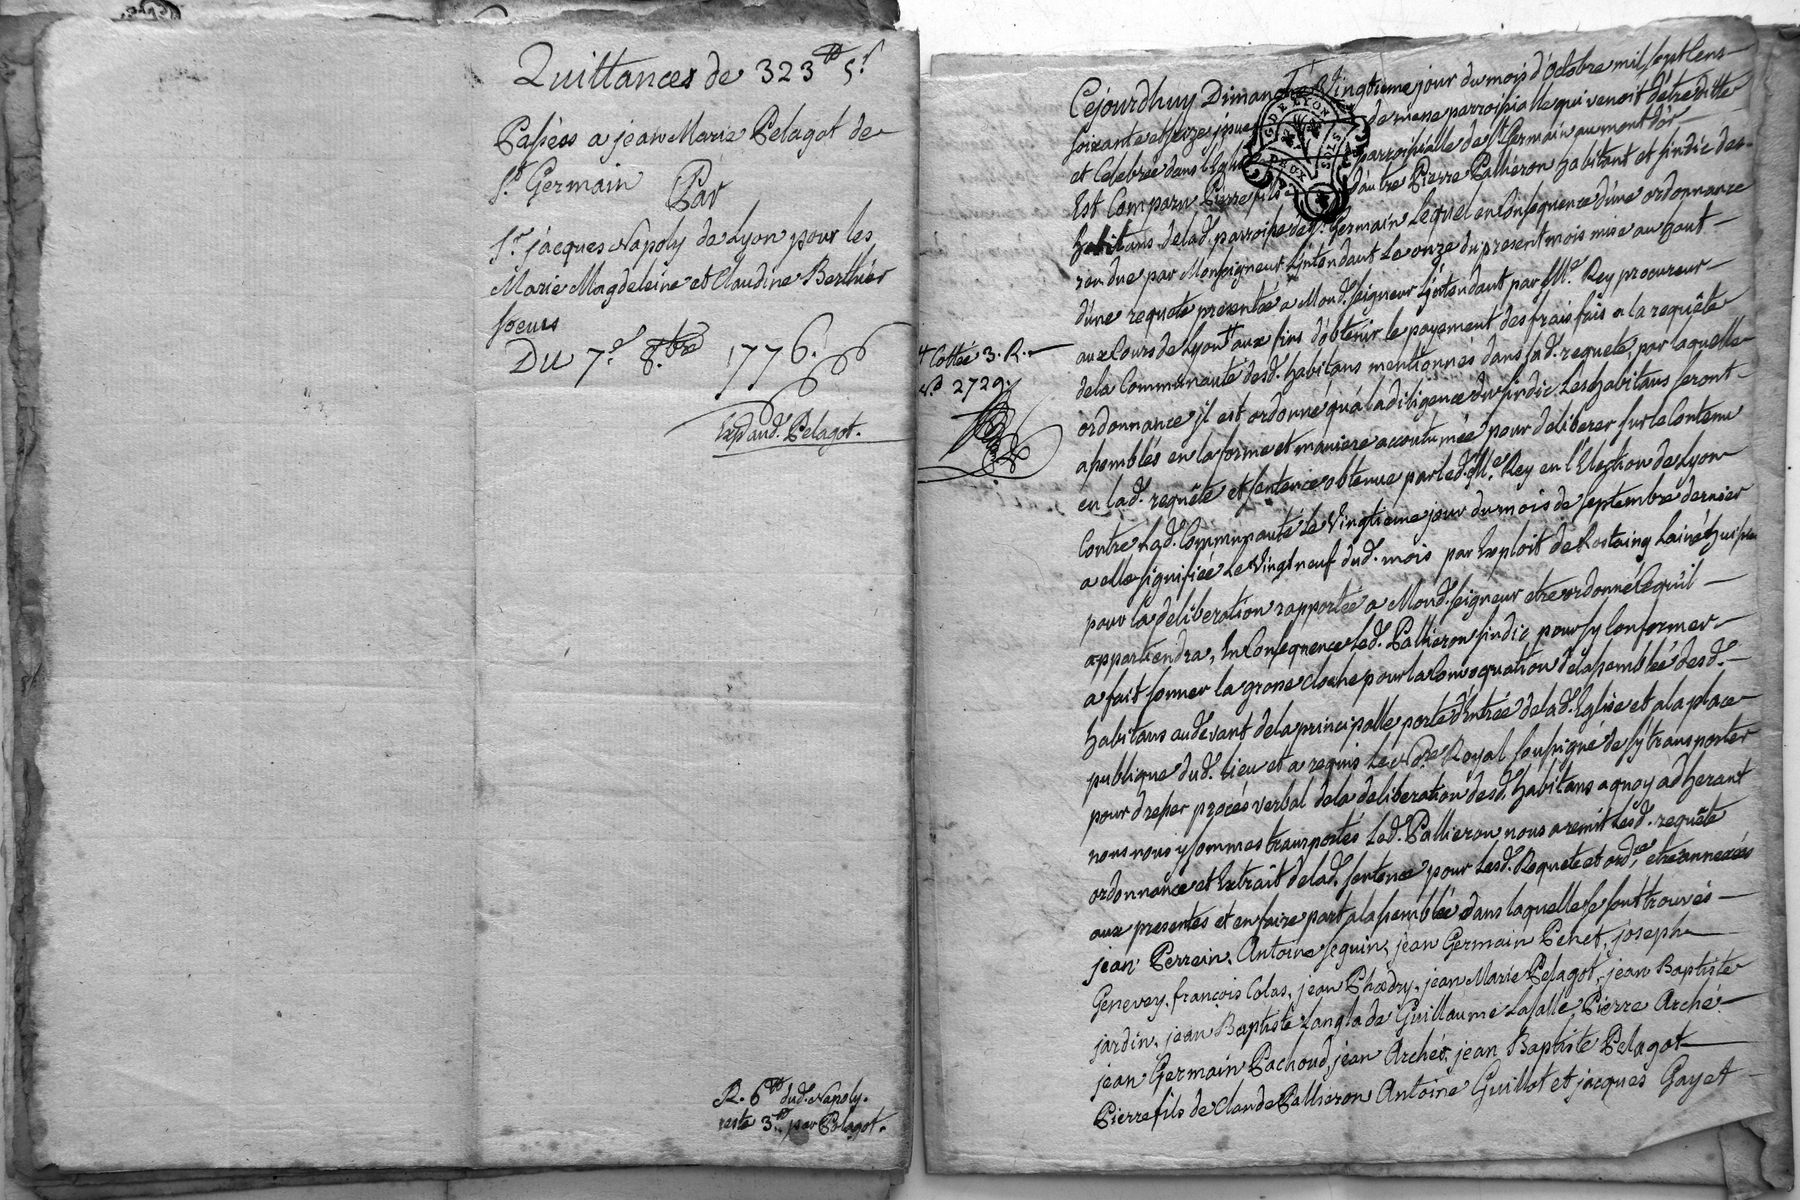 Quittances de 323ᵗᵗ 5ˢ
Passées a jean Marie Pelagot de
Sᵗ Germain Par
Sʳ jacques Napoly de Lyon pour les
Marie Magdeleine et Claudine Berthier
soeurs
Du 7.ᵉ 8.ᵇʳᵉ 1776.
Exp aud. Pelagot.
R. 6ᵗᵗ dud. Napoly.
reste 3ᵗᵗ par Pelagot.
Cejourdhuy Dimanche Vingtieme jour du mois d'Octobre mil sept cens
soixante et seize issue de messe parroissialle qui venoit d'etre ditte
et Celebrée dans l'Eglise parroissialle de Sᵗ Germain au mont d'or
Est Comparu Pierre fils d'autre Pierre Pallieron habitant et sindic des
habitans de lad. parroisse de Sᵗ Germain Lequel en Consequence d'une ordonnance
rendue par Monseigneur L'jntendant Le onze du present mois mise au haut
d'une requete presentée a Mond. seigneur L'jntendant par Mᵉ Rey procureur
aux Cours de Lyon ⧺ aux fins d'obtenir le payement des frais fais a la requête
⧺ Cottée 3. R.
N.º 2729.
de la Communauté desd. habitans mentionnés dans lad. requete, par laquelle
ordonnance jl est ordonné qu'a la diligence du sindic Les habitans seront
assemblés en la forme et maniere accoutumée pour deliberer sur le Contenu
en lad. requête et sentence obtenue par led. Mᵉ Rey en l'Election de Lyon
Contre Lad. Communauté Le Vingtieme jour du mois de septembre dernier
a elle signifiée Le Vingt neuf dud. mois par Exploit de Rostaing Lainé huissier
pour la deliberation rapportée a Mond. seigneur etre ordonné Cequ'il
appartiendra, En Consequence Led. Pallieron sindic pour sy Conformer
a fait sonner la grosse cloche pour la Convoquation de l'assemblée desd.
habitans au devant de la principalle porte d'Entrée de lad. Eglise et a la place
publique dud. Lieu et a requis Le Nʳᵉ Royal soussigné de sy transporter
pour dresser procés verbal de la deliberation desd. habitans a quoy adherant
nous nous y sommes transportés Led. Pallieron nous a remit Lesd. requête
ordonnance et Extrait de lad. sentence pour Lesd. Requete et ordᶜᵉ, etre annexées
aux presentes et en faire part a l'assemblée dans laquelle se sont trouvés
jean Perrein, Antoine seguin, jean Germain Penet, joseph
Genevey, françois Colas, jean Phœdry, jean Marie Pelagot, jean Baptiste
jardin, jean Baptiste Langlade Guillaume Lasalle, Pierre Arché
jean Germain Pachoud, jean Archér, jean Baptiste Pelagot
Pierre fils de Claude Pallieron Antoine Guillot et jacques Gayet